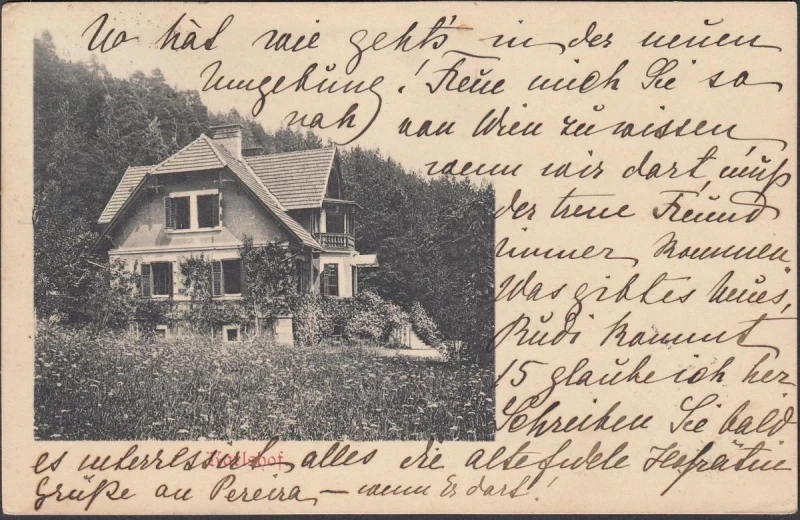 Wo hät wie geht's in der neuen
Umgebung! Freue mich Sie so
nah von Wien zu wissen,
wenn wir dort, muß
der treue Freund
immer kommen
Was gibt es Neues,
Rudi kommt
15 glaube ich her
Schreiben Sie bald
es interressirt alles die alte fidele
Grüße an Pereira, — wenn Er dort!